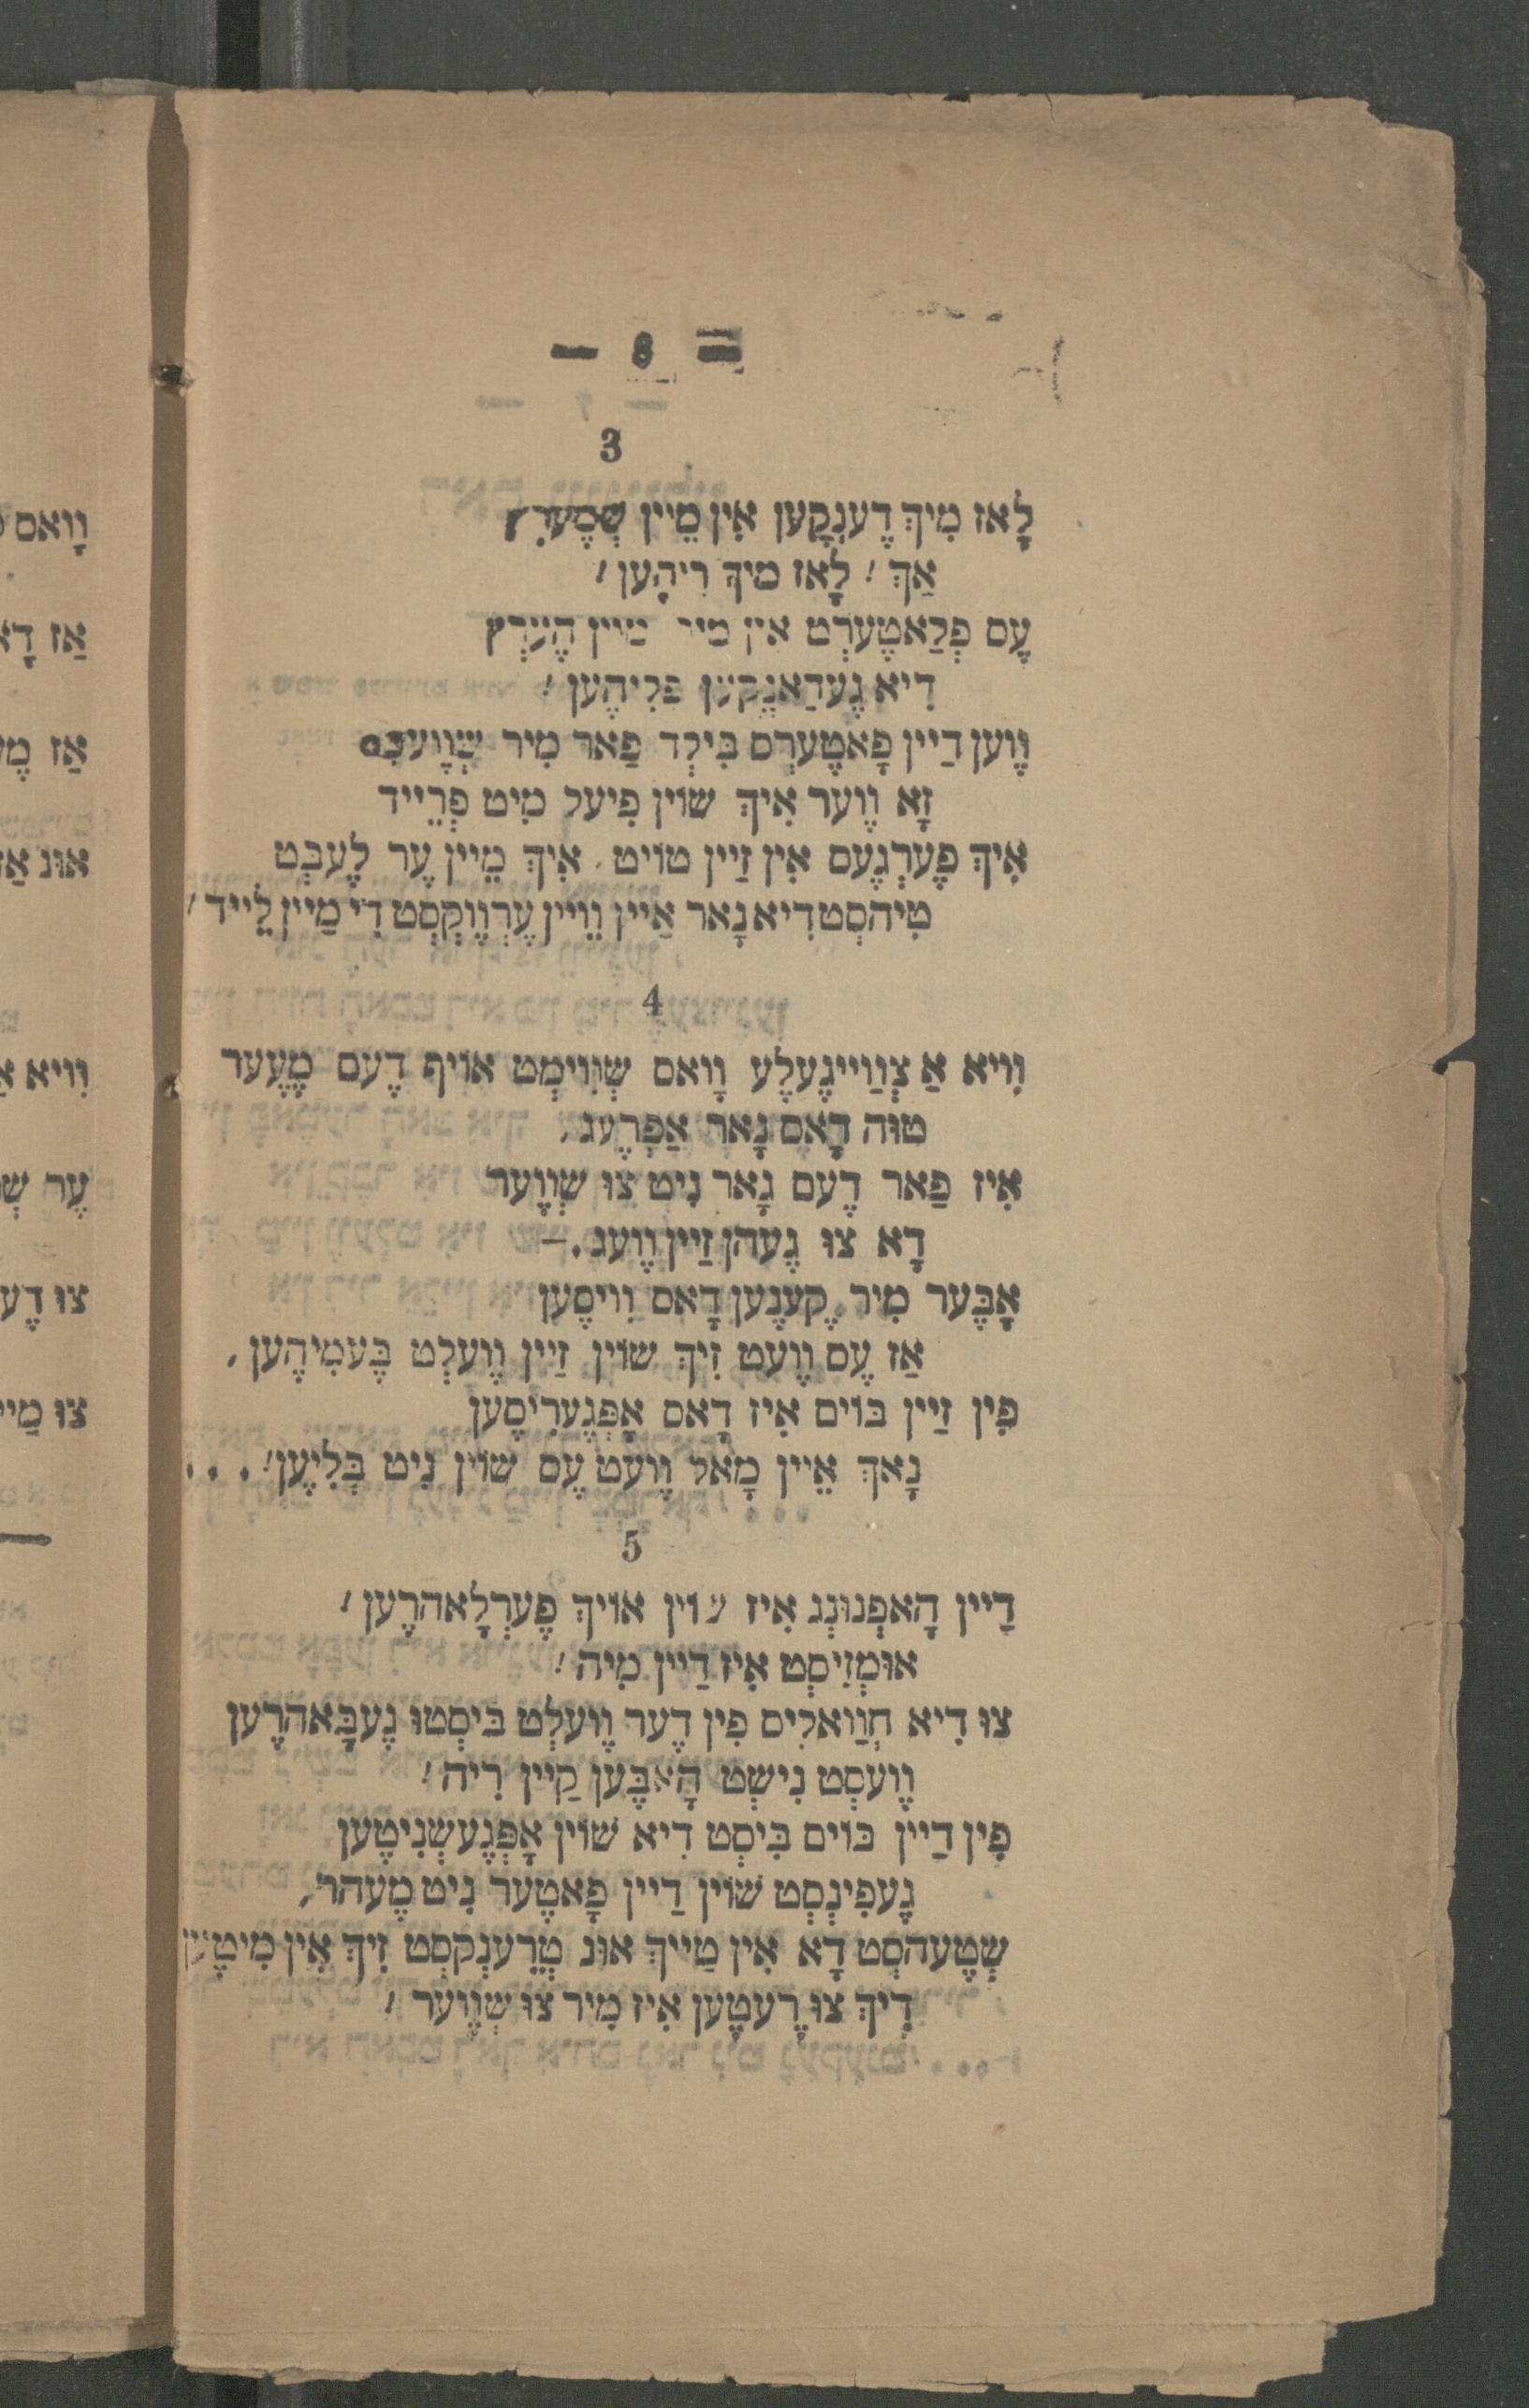 — 8 —
3
לָאז מִיךְ דֶענְקֶען אִין מֵיין שְׁמֶערץ
אַךְ! לָאז מיךְ רִיהֶען!
עֶס פְלַאטֶערְט אין מיר מיין הֶערְץ
דִיא גֶעדַאנְקֶען פלִיהֶען!
וֶוען דַיין פָאטֶערְס בִּילְד פַאר מִיר שְׁוֶועבט
זָא וֶוער אִיךְ שוֹין פִיעל מִיט פְרֵייד
אִיךְ פֶערְגֶעס אִין זַיין טויט, אִיךְ מֵיין עֶר לֶעבְּט
טִיהסְט דִיא נָאר אַיין וֵויין עֶרְוֶוקְסְט דִי מַיין לֵייד!
4
וִויא אַ צְוַוייגֶעלֶע וָואס שְׁוִוימְט אוֹיף דֶעם מֶעֶער
טוּה דָאס נָאר אַפְרֶעג,
אִיז פַאר דֶעם גָאר נִיט צוּ שְׁוֶוער
דָא צוּ גֶעהן זַיין וֶועג.—
אָבֶּער מִיר קֶענֶען דָאס וִויסֶען
אַז עֶס וֶועט זִיךְ שוֹין זַיין וֶועלְט בֶּעמִיהֶען,
פִין זַיין בּוֹים אִיז דָאס אָפְּגֶערִיסֶען
נָאךְ אֵיין מָאל וֶועט עֶס שוֹין נִיט בְּלִיעֶן!...
5
דַיין הָאפְנוּנְג אִיז שוין אויךְ פֶערְלָאהרֶען!
אוּמְזִיסְט אִיז דַיין מִיה!
צוּ דִיא חְוַואלִיס פִין דֶער וֶועלְט בִּיסְטוּ גֶעבָּאהרֶען
וֶועסְט נִישְׁט הָאבֶּען קַיין רִיה!
פִין דַיין בּוֹים בִּיסְט דִיא שׁוֹין אָפְּגֶעשְׁנִיטֶען
גֶעפִינְסְט שׁוֹין דַיין פָאטֶער נִיט מֶעהר,
שְׁטֶעהסְט דָא אִין טַייךְ אוּנ טְרֶענְקסְט זִיךְ אִין מִיטֶען
דִיךְ צוּ רֶעטֶען אִיז מִיר צוּ שְׁוֶוער!
וָואס
אַז
אַז
אוּנ
וִויא
עֶר
צוּ
צוּ